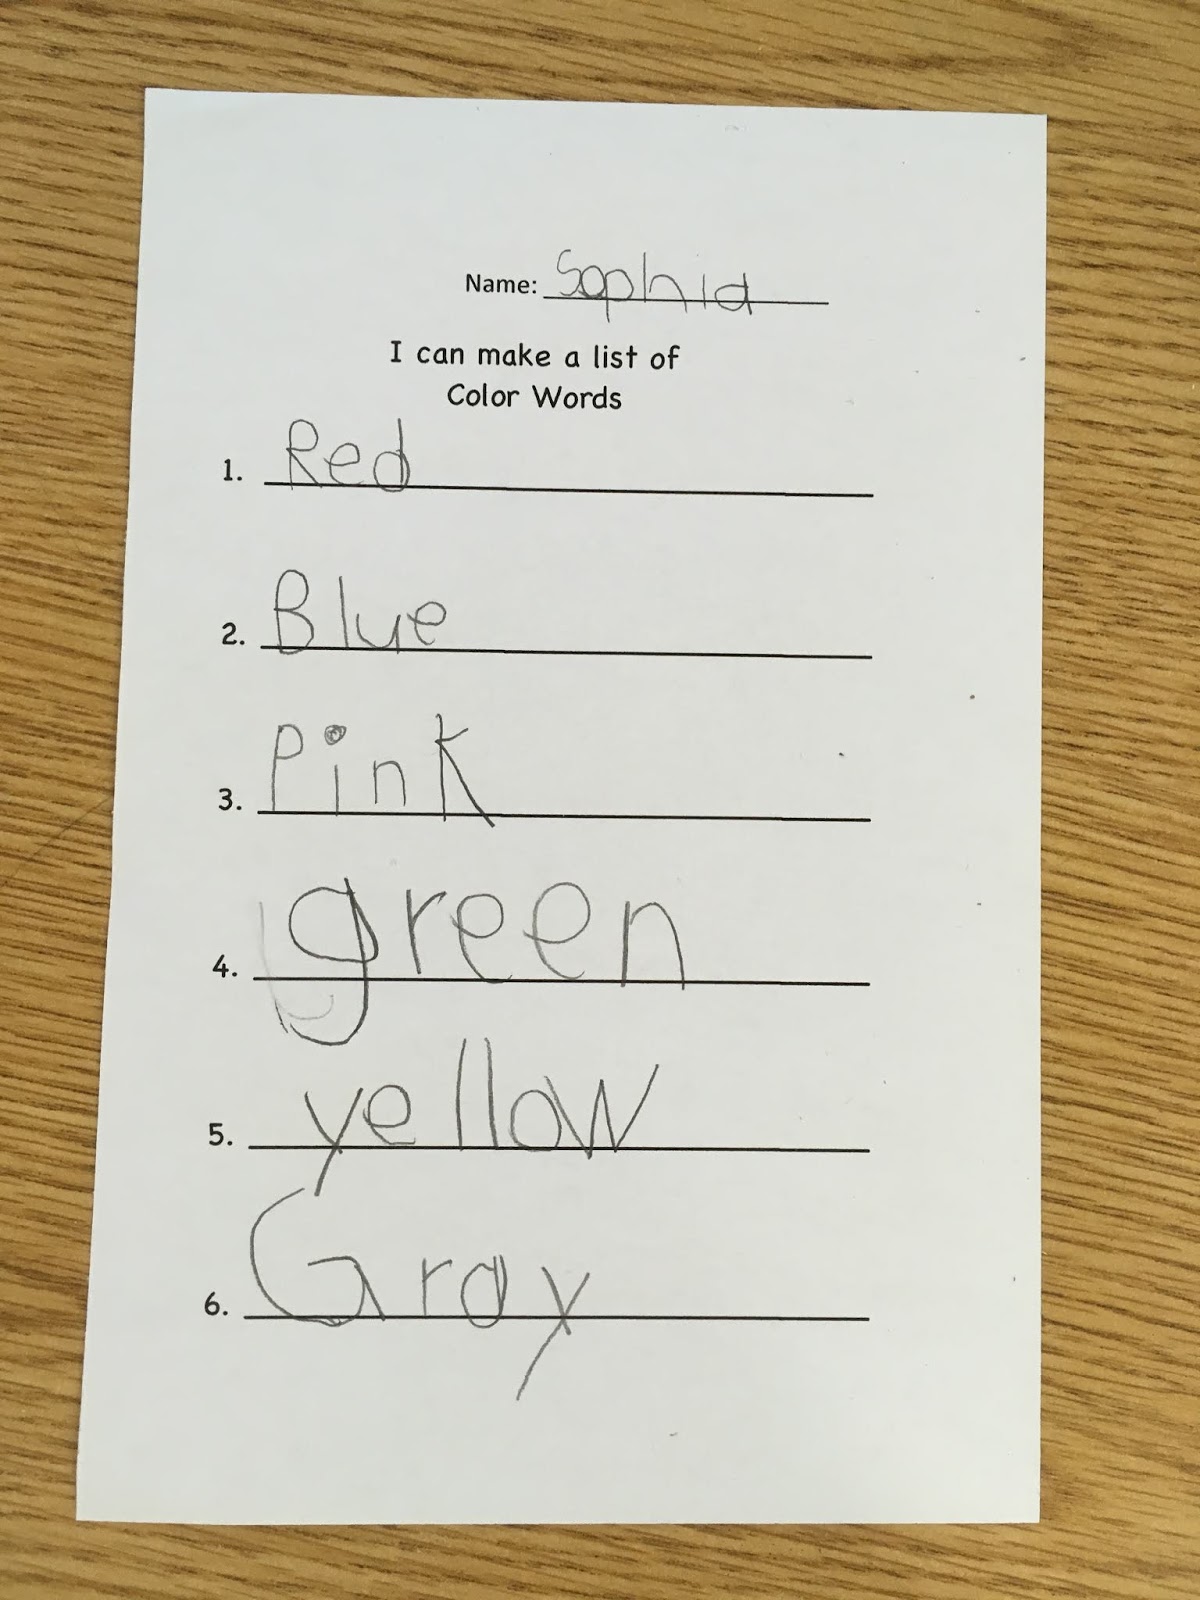 Name: Sophia
I can make a list of
Color Words
1. Red
2. Blue
3. Pink
4. green
5. yellow
6. Gray